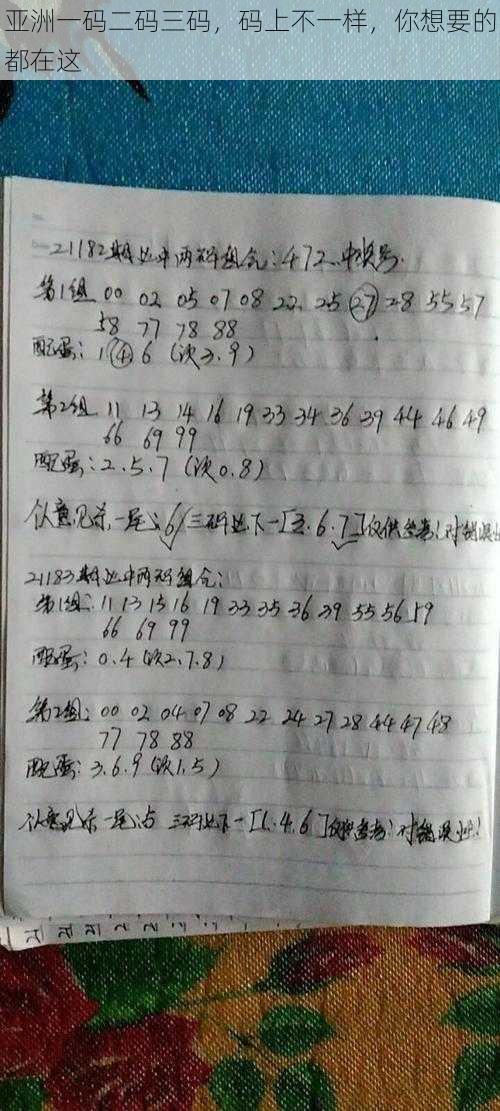 亚洲一码二码三码，码上不一样，你想要的
都在这
21182期 中两码组合：472 中
第1组 00 02 05 07 08 22 25 27 28 55 57
58 77 78 88
配蛋：1 4 6 (次3.9)
第2组 11 13 14 16 19 33 34 36 39 44 46 49
66 69 99
配蛋：2.5.7 (次0.8)
个人意见杀一尾：6 三码 下一[3.6.7]仅供参考！对错
21183期 中两码组合：
第1组：11 13 15 16 19 33 35 36 39 55 56 59
66 69 99
配蛋：0.4 (次2.7.8)
第2组：00 02 04 07 08 22 24 27 28 44 47 48
77 78 88
配蛋：3.6.9 (次1.5)
个人意见杀一尾： 三码 下一[1.4.6]仅供参考！对错